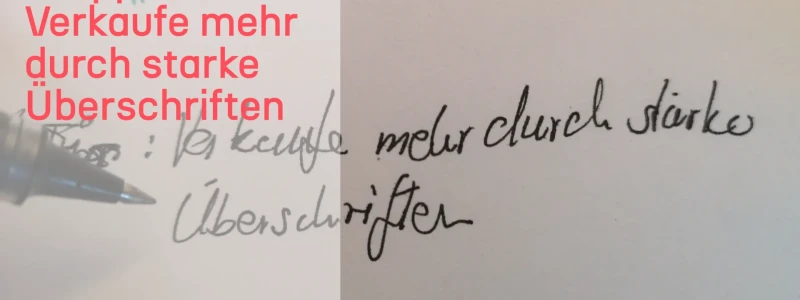 Verkaufe mehr
durch starke
Überschriften
: Verkaufe mehr durch starke
Überschriften